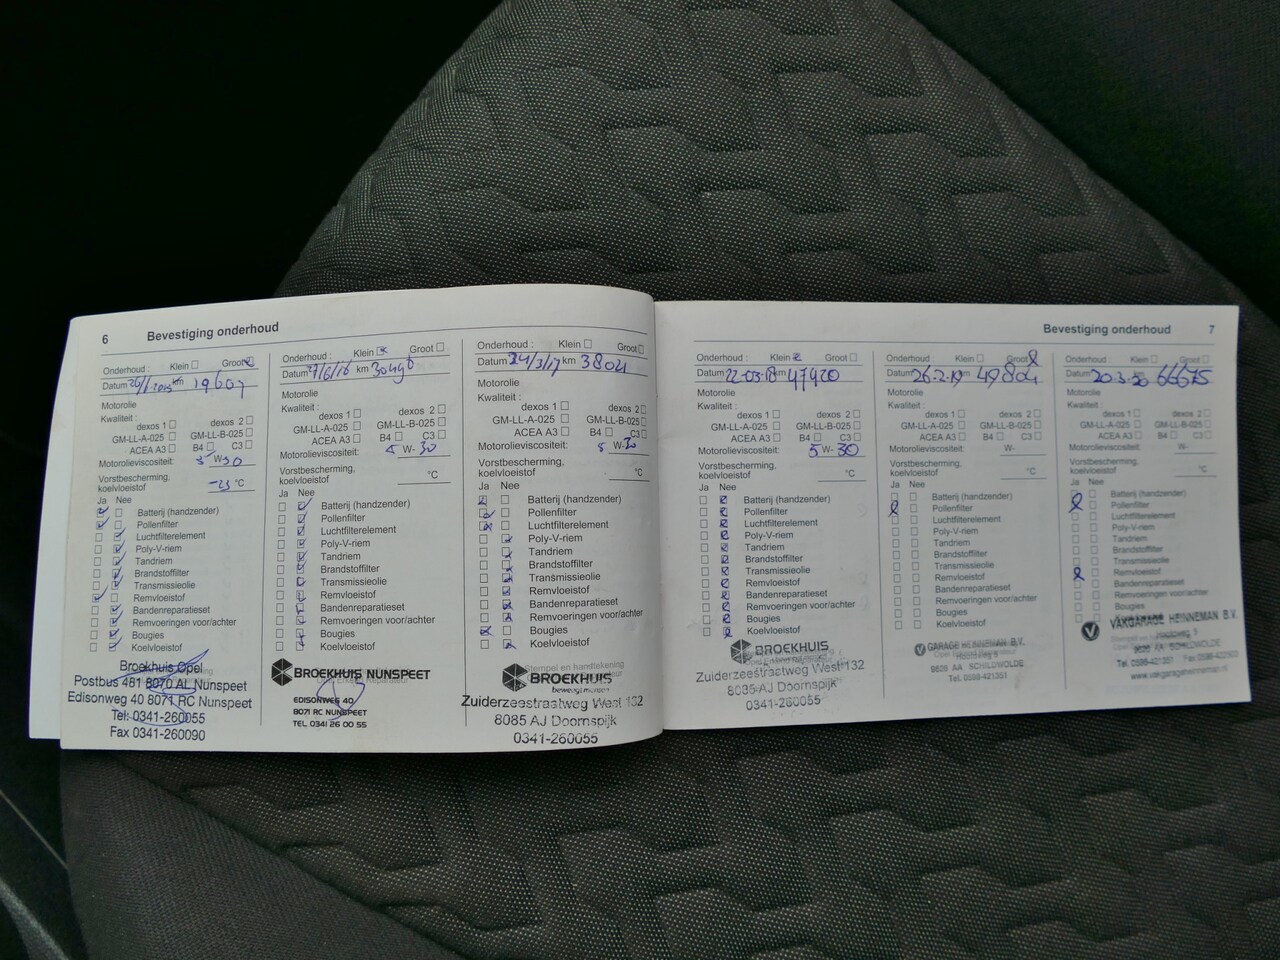 6 Bevestiging onderhoud
Onderhoud : Klein Groot
Datum km 19607
Motorolie
Kwaliteit :
dexos 1 dexos 2
GM-LL-A-025 GM-LL-B-025
ACEA A3 B4 C3
Motorolieviscositeit: 5 W-30
Vorstbescherming,
koelvloeistof °C
Ja Nee
Batterij (handzender)
Pollenfilter
Luchtfilterelement
Poly-V-riem
Tandriem
Brandstoffilter
Transmissieolie
Remvloeistof
Bandenreparatieset
Remvoeringen voor/achter
Bougies
Koelvloeistof
Broekhuis Opel
Postbus 461 8070 AL Nunspeet
Edisonweg 40 8071 RC Nunspeet
Tel: 0341-260055
Fax 0341-260090
Onderhoud : Klein Groot
Datum 7/6/16 km
Motorolie
Kwaliteit :
dexos 1 dexos 2
GM-LL-A-025 GM-LL-B-025
ACEA A3 B4 C3
Motorolieviscositeit: 5 W-30
Vorstbescherming,
koelvloeistof °C
Ja Nee
Batterij (handzender)
Pollenfilter
Luchtfilterelement
Poly-V-riem
Tandriem
Brandstoffilter
Transmissieolie
Remvloeistof
Bandenreparatieset
Remvoeringen voor/achter
Bougies
Koelvloeistof
BROEKHUIS NUNSPEET
EDISONWEG 40
8071 RC NUNSPEET
TEL 0341 26 00 55
Onderhoud : Klein Groot
Datum 24/3/17 km 38041
Motorolie
Kwaliteit :
dexos 1 dexos 2
GM-LL-A-025 GM-LL-B-025
ACEA A3 B4 C3
Motorolieviscositeit: 5 W-30
Vorstbescherming,
koelvloeistof °C
Ja Nee
Batterij (handzender)
Pollenfilter
Luchtfilterelement
Poly-V-riem
Tandriem
Brandstoffilter
Transmissieolie
Remvloeistof
Bandenreparatieset
Remvoeringen voor/achter
Bougies
Koelvloeistof
Stempel en handtekening
BROEKHUIS
beweegt mensen
Zuiderzeestraatweg West 132
8085 AJ Doornspijk
0341-260055
Bevestiging onderhoud 7
Onderhoud : Klein Groot
Datum 22-03-18 km 47420
Motorolie
Kwaliteit :
dexos 1 dexos 2
GM-LL-A-025 GM-LL-B-025
ACEA A3 B4 C3
Motorolieviscositeit: 5 W-30
Vorstbescherming,
koelvloeistof °C
Ja Nee
Batterij (handzender)
Pollenfilter
Luchtfilterelement
Poly-V-riem
Tandriem
Brandstoffilter
Transmissieolie
Remvloeistof
Bandenreparatieset
Remvoeringen voor/achter
Bougies
Koelvloeistof
BROEKHUIS
Zuiderzeestraatweg West 132
8085 AJ Doornspijk
0341-260055
Onderhoud : Klein Groot
Datum 26-2-19 km 49804
Motorolie
Kwaliteit :
dexos 1 dexos 2
GM-LL-A-025 GM-LL-B-025
ACEA A3 B4 C3
Motorolieviscositeit: W-
Vorstbescherming,
koelvloeistof °C
Ja Nee
Batterij (handzender)
Pollenfilter
Luchtfilterelement
Poly-V-riem
Tandriem
Brandstoffilter
Transmissieolie
Remvloeistof
Bandenreparatieset
Remvoeringen voor/achter
Bougies
Koelvloeistof
GARAGE HEINNEMAN B.V.
9626 AA SCHILDWOLDE
Tel. 0598-421351
Onderhoud : Klein Groot
Datum 20-3-20 km 66675
Motorolie
Kwaliteit :
dexos 1 dexos 2
GM-LL-A-025 GM-LL-B-025
ACEA A3 B4 C3
Motorolieviscositeit: W-
Vorstbescherming,
koelvloeistof °C
Ja Nee
Batterij (handzender)
Pollenfilter
Luchtfilterelement
Poly-V-riem
Tandriem
Brandstoffilter
Transmissieolie
Remvloeistof
Bandenreparatieset
Remvoeringen voor/achter
Bougies
Koelvloeistof
VAKGARAGE HEINNEMAN B.V.
9626 AA SCHILDWOLDE
Tel. 0598-421351